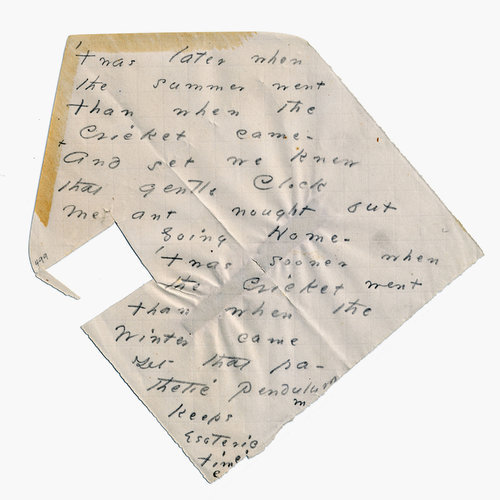 'twas later when
the summer went
than when the
Cricket came -
And yet we knew
that gentle Clock
meant nought but
Going Home -
'twas sooner when
the Cricket went
than when the
Winter came
Yet that pa-
thetic Pendulum
keeps
Esoteric
time